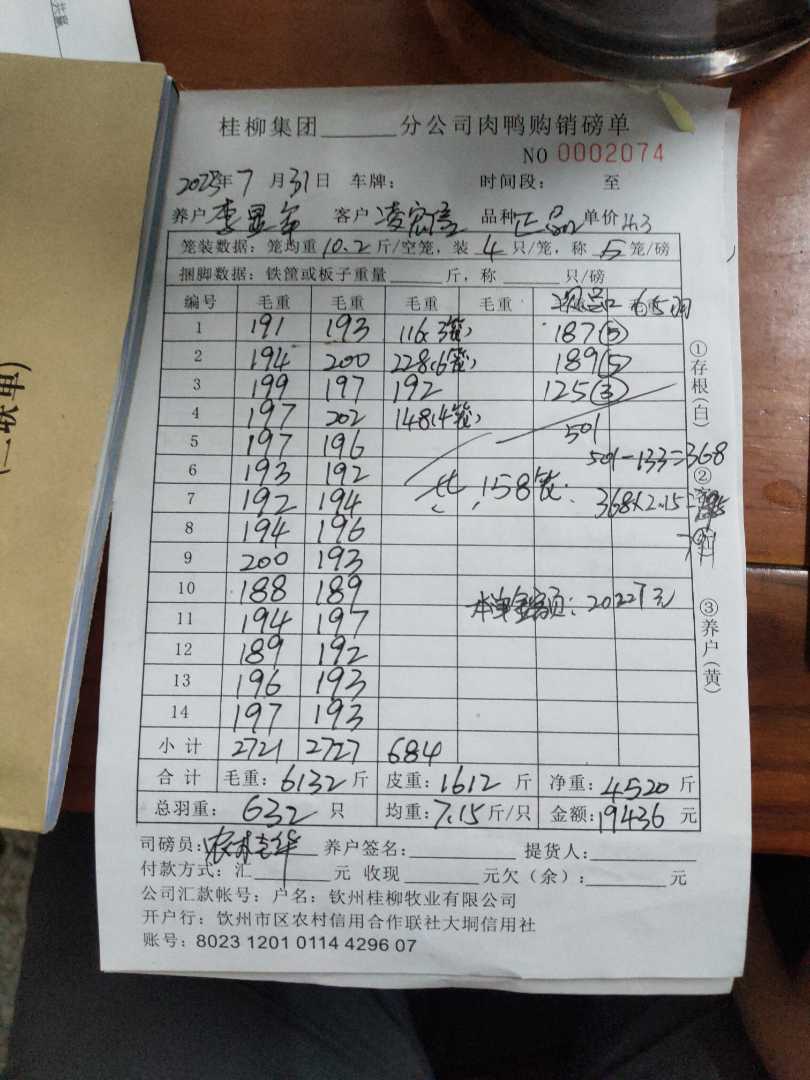 桂柳集团______分公司肉鸭购销磅单
NO 0002074
2025年7月31日 车牌: 时间段: 至
养户 李显 客户 凌宏信 品种 正品 单价 4.3
笼装数据: 笼均重 10.2 斤/空笼, 装 4 只/笼, 称 5 笼/磅
捆脚数据: 铁筐或板子重量______斤, 称______只/磅
编号 毛重 毛重 毛重 毛重
1 191 193 116(3笼) 187(5)
2 194 200 228(6笼) 189(5)
3 199 197 192 125(3)
4 197 202 148(4笼) 501
5 197 196 501-133=368
6 193 192 共158笼
7 192 194 368×2.15=
8 194 196
9 200 193
10 188 189 20227元
11 194 197
12 189 192
13 196 193
14 197 193
小计 2721 2727 684
合计 毛重: 6132 斤 皮重: 1612 斤 净重: 4520 斤
总羽重: 632 只 均重: 7.15 斤/只 金额: 19436 元
司磅员: 华 养户签名: 提货人:
付款方式: 汇______元 收现______元欠(余):______元
公司汇款帐号: 户名: 钦州桂柳牧业有限公司
开户行: 钦州市区农村信用合作联社大垌信用社
账号: 8023 1201 0114 4296 07
①存根(白)
②
③养户(黄)
二联单)